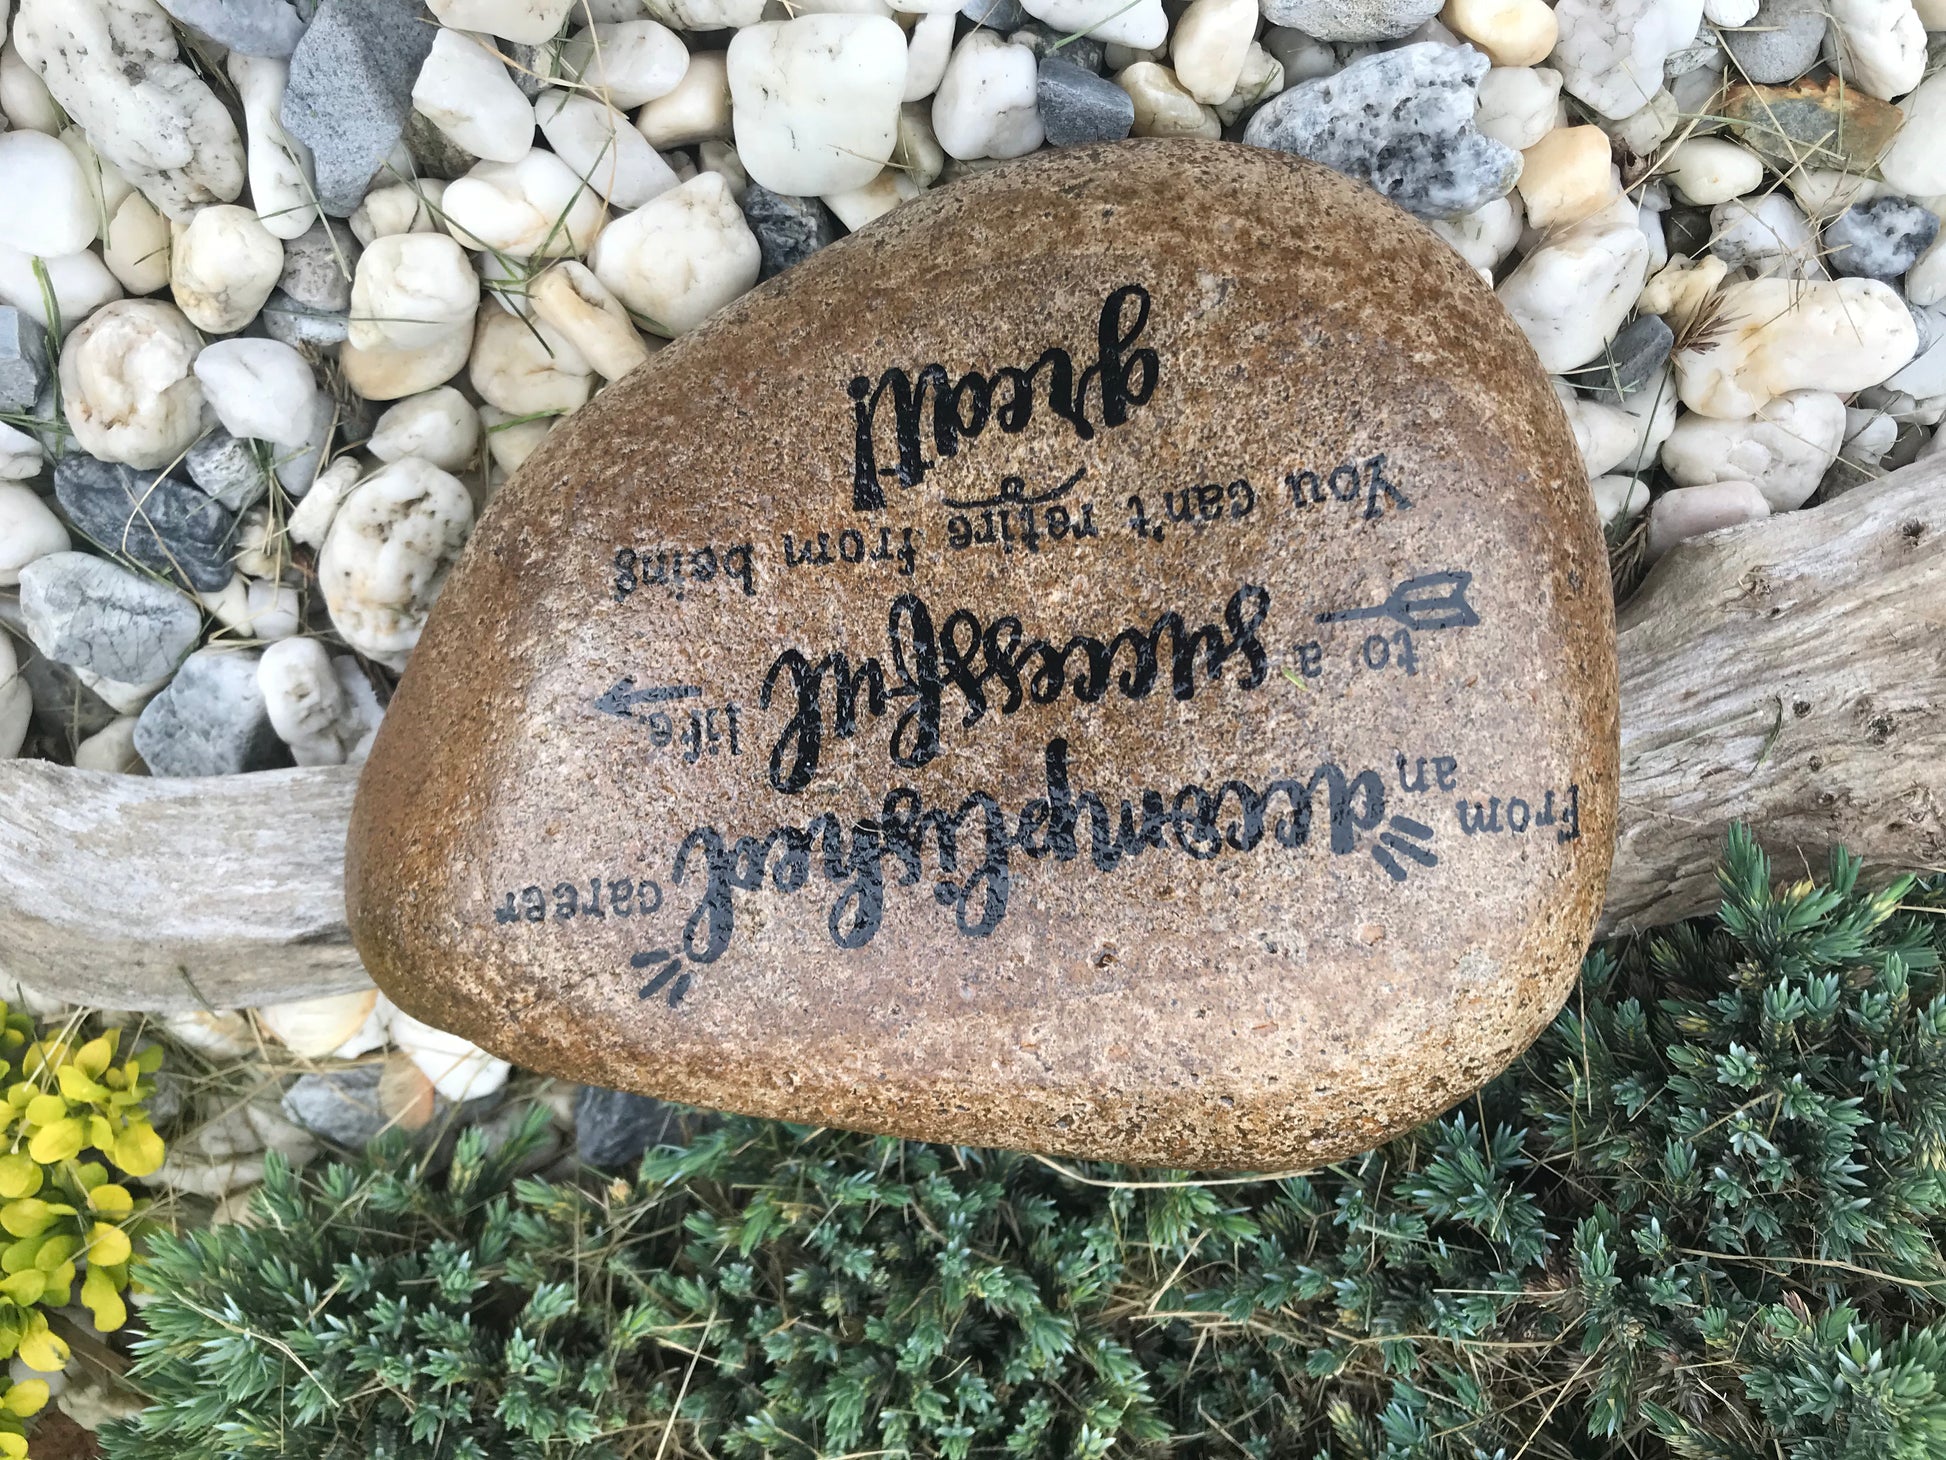 From an accomplished career
to a successful life
You can't retire from being
great!